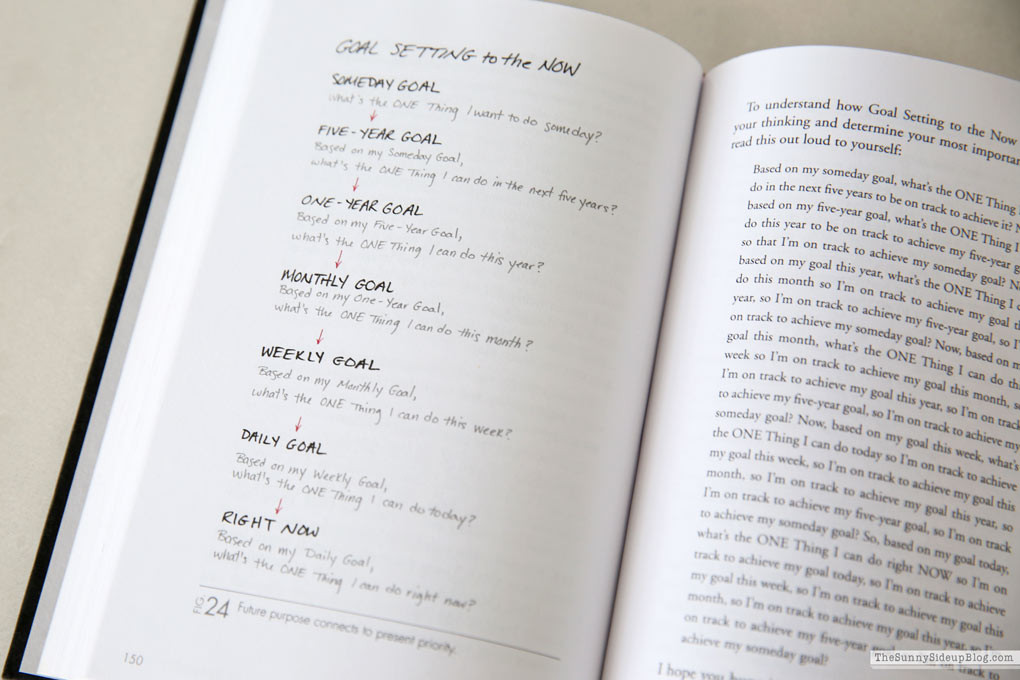 GOAL SETTING to the NOW
SOMEDAY GOAL
what's the ONE Thing I want to do someday?
FIVE-YEAR GOAL
Based on my Someday Goal,
what's the ONE Thing I can do in the next five years?
ONE-YEAR GOAL
Based on my Five-Year Goal,
what's the ONE Thing I can do this year?
MONTHLY GOAL
Based on my One-Year Goal,
what's the ONE Thing I can do this month?
WEEKLY GOAL
Based on my Monthly Goal,
what's the ONE Thing I can do this week?
DAILY GOAL
Based on my Weekly Goal,
what's the ONE Thing I can do today?
RIGHT NOW
Based on my Daily Goal,
what's the ONE Thing I can do right now?
FIG. 24 Future purpose connects to present priority.
150
To understand how Goal Setting to the Now
your thinking and determine your most
read this out loud to yourself:
Based on my someday goal, what's the ONE Thing
do in the next five years to be on track to achieve it?
based on my five-year goal, what's the ONE Thing I
do this year to be on track to achieve my five-year
so that I'm on track to achieve my someday goal?
based on my goal this year, what's the ONE Thing I
do this month so I'm on track to achieve my goal
year, so I'm on track to achieve my five-year goal, so
on track to achieve my someday goal? Now, based on
goal this month, what's the ONE Thing I can do
week so I'm on track to achieve my goal this month,
I'm on track to achieve my goal this year, so I'm on
to achieve my five-year goal, so I'm on track to achieve my
someday goal? Now, based on my goal this week, what's
the ONE Thing I can do today so I'm on track to achieve
my goal this week, so I'm on track to achieve my goal this
month, so I'm on track to achieve my goal this year, so
I'm on track to achieve my five-year goal, so I'm on track
to achieve my someday goal? So, based on my goal today,
what's the ONE Thing I can do right NOW so I'm on
track to achieve my goal today, so I'm on track to achieve
my goal this week, so I'm on track to achieve my goal this
month, so I'm on track to achieve my goal this year, so
on track to achieve my five-year goal, so I'm on track to
achieve my someday goal?
I hope you
TheSunnySideupBlog.com